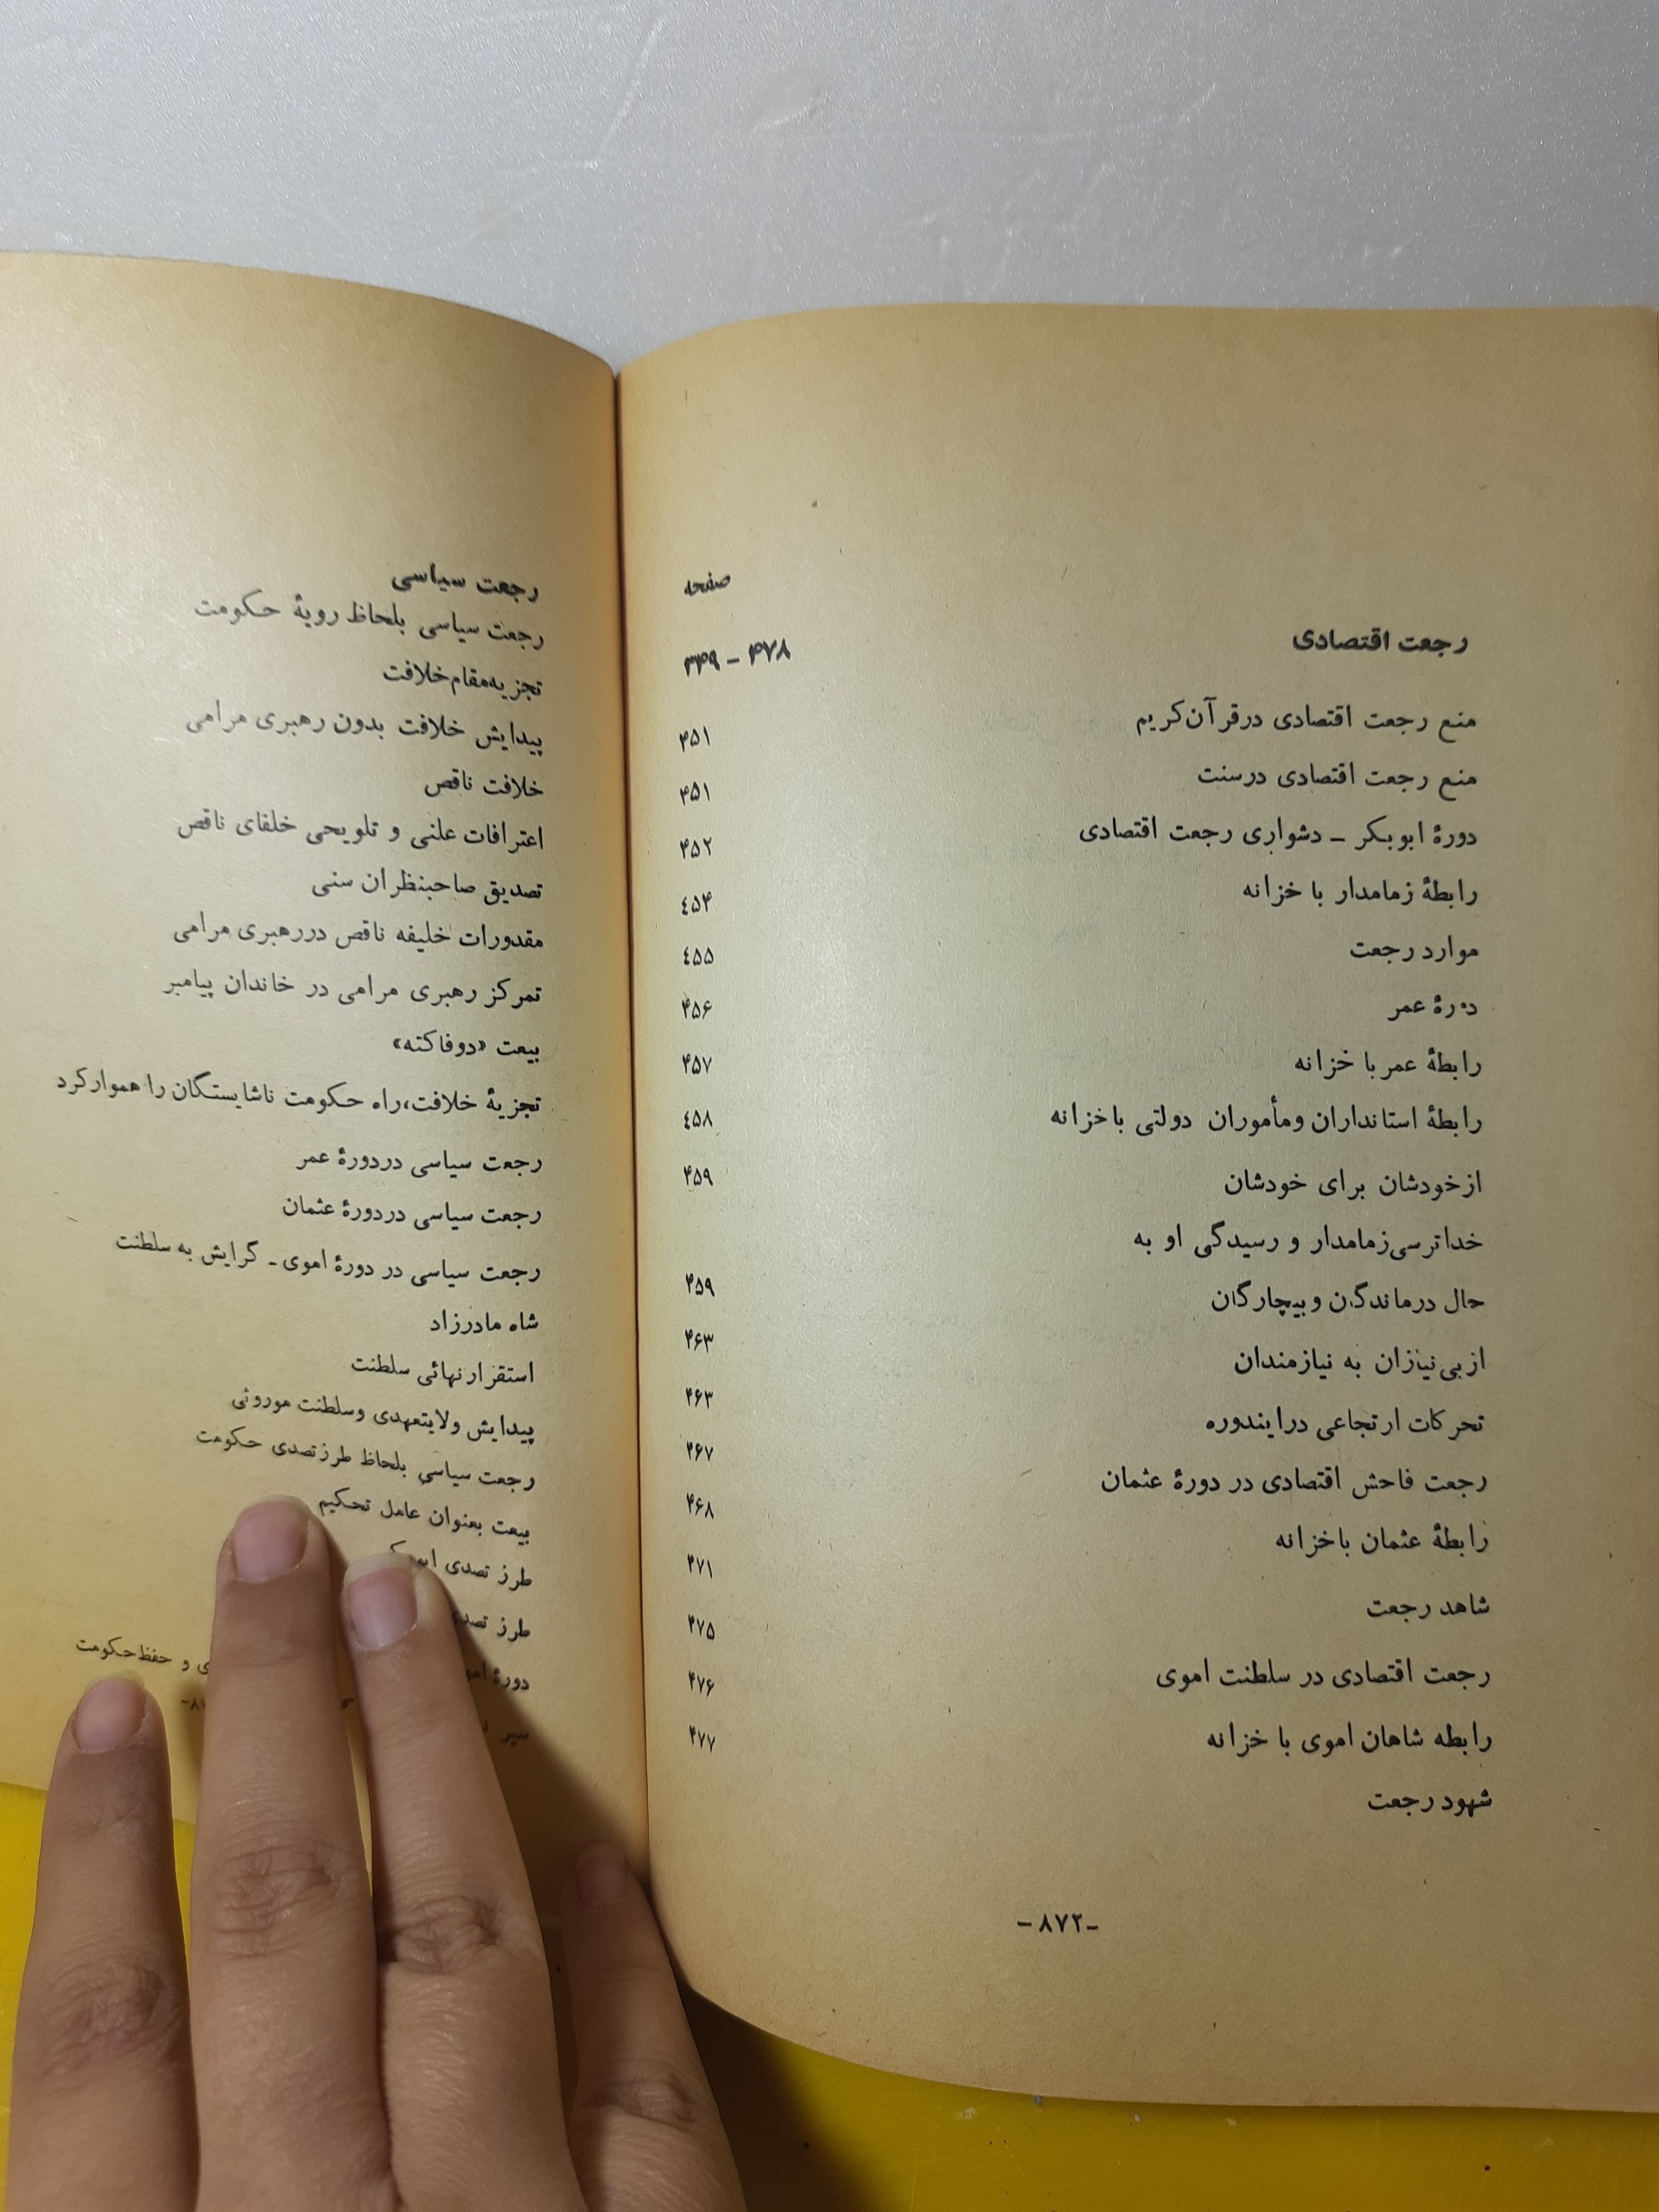 صفحه
رجعت اقتصادی ۳۴۹ – ۴۷۸
منع رجعت اقتصادی درقرآن‌کریم ۴۵۱
منع رجعت اقتصادی درسنت ۴۵۱
دورهٔ ابوبکر – دشواری رجعت اقتصادی ۴۵۲
رابطهٔ زمامدار با خزانه ۴۵۴
موارد رجعت ۴۵۵
دورهٔ عمر ۴۵۶
رابطهٔ عمر با خزانه ۴۵۷
رابطهٔ استانداران ومأموران دولتی باخزانه ۴۵۸
ازخودشان برای خودشان ۴۵۹
خداترسی‌زمامدار و رسیدگی او به
حال درماندگان وبیچارگان ۴۵۹
ازبی‌نیازان به نیازمندان ۴۶۳
تحرکات ارتجاعی دراین‌دوره ۴۶۳
رجعت فاحش اقتصادی در دورهٔ عثمان ۴۶۷
رابطهٔ عثمان باخزانه ۴۶۸
شاهد رجعت ۴۷۱
رجعت اقتصادی در سلطنت اموی ۴۷۵
رابطه شاهان اموی با خزانه ۴۷۶
شهود رجعت ۴۷۷
-۸۷۲-
رجعت سیاسی
رجعت سیاسی بلحاظ رویهٔ حکومت
تجزیه‌مقام‌خلافت
پیدایش خلافت بدون رهبری مرامی
خلافت ناقص
اعترافات علنی و تلویحی خلفای ناقص
تصدیق صاحبنظران سنی
مقدورات خلیفه ناقص دررهبری مرامی
تمرکز رهبری مرامی در خاندان پیامبر
بیعت «دوفاکته»
تجزیهٔ خلافت،راه حکومت ناشایستگان را هموارکرد
رجعت سیاسی دردورهٔ عمر
رجعت سیاسی دردورهٔ عثمان
رجعت سیاسی در دورهٔ اموی - گرایش به سلطنت
شاه مادرزاد
استقرارنهائی سلطنت
پیدایش ولایتعهدی وسلطنت موروثی
رجعت سیاسی بلحاظ طرزتصدی حکومت
بیعت بعنوان عامل تحکیم
طرز تصدی
طرز
دورهٔ و حفظ‌حکومت
سیر